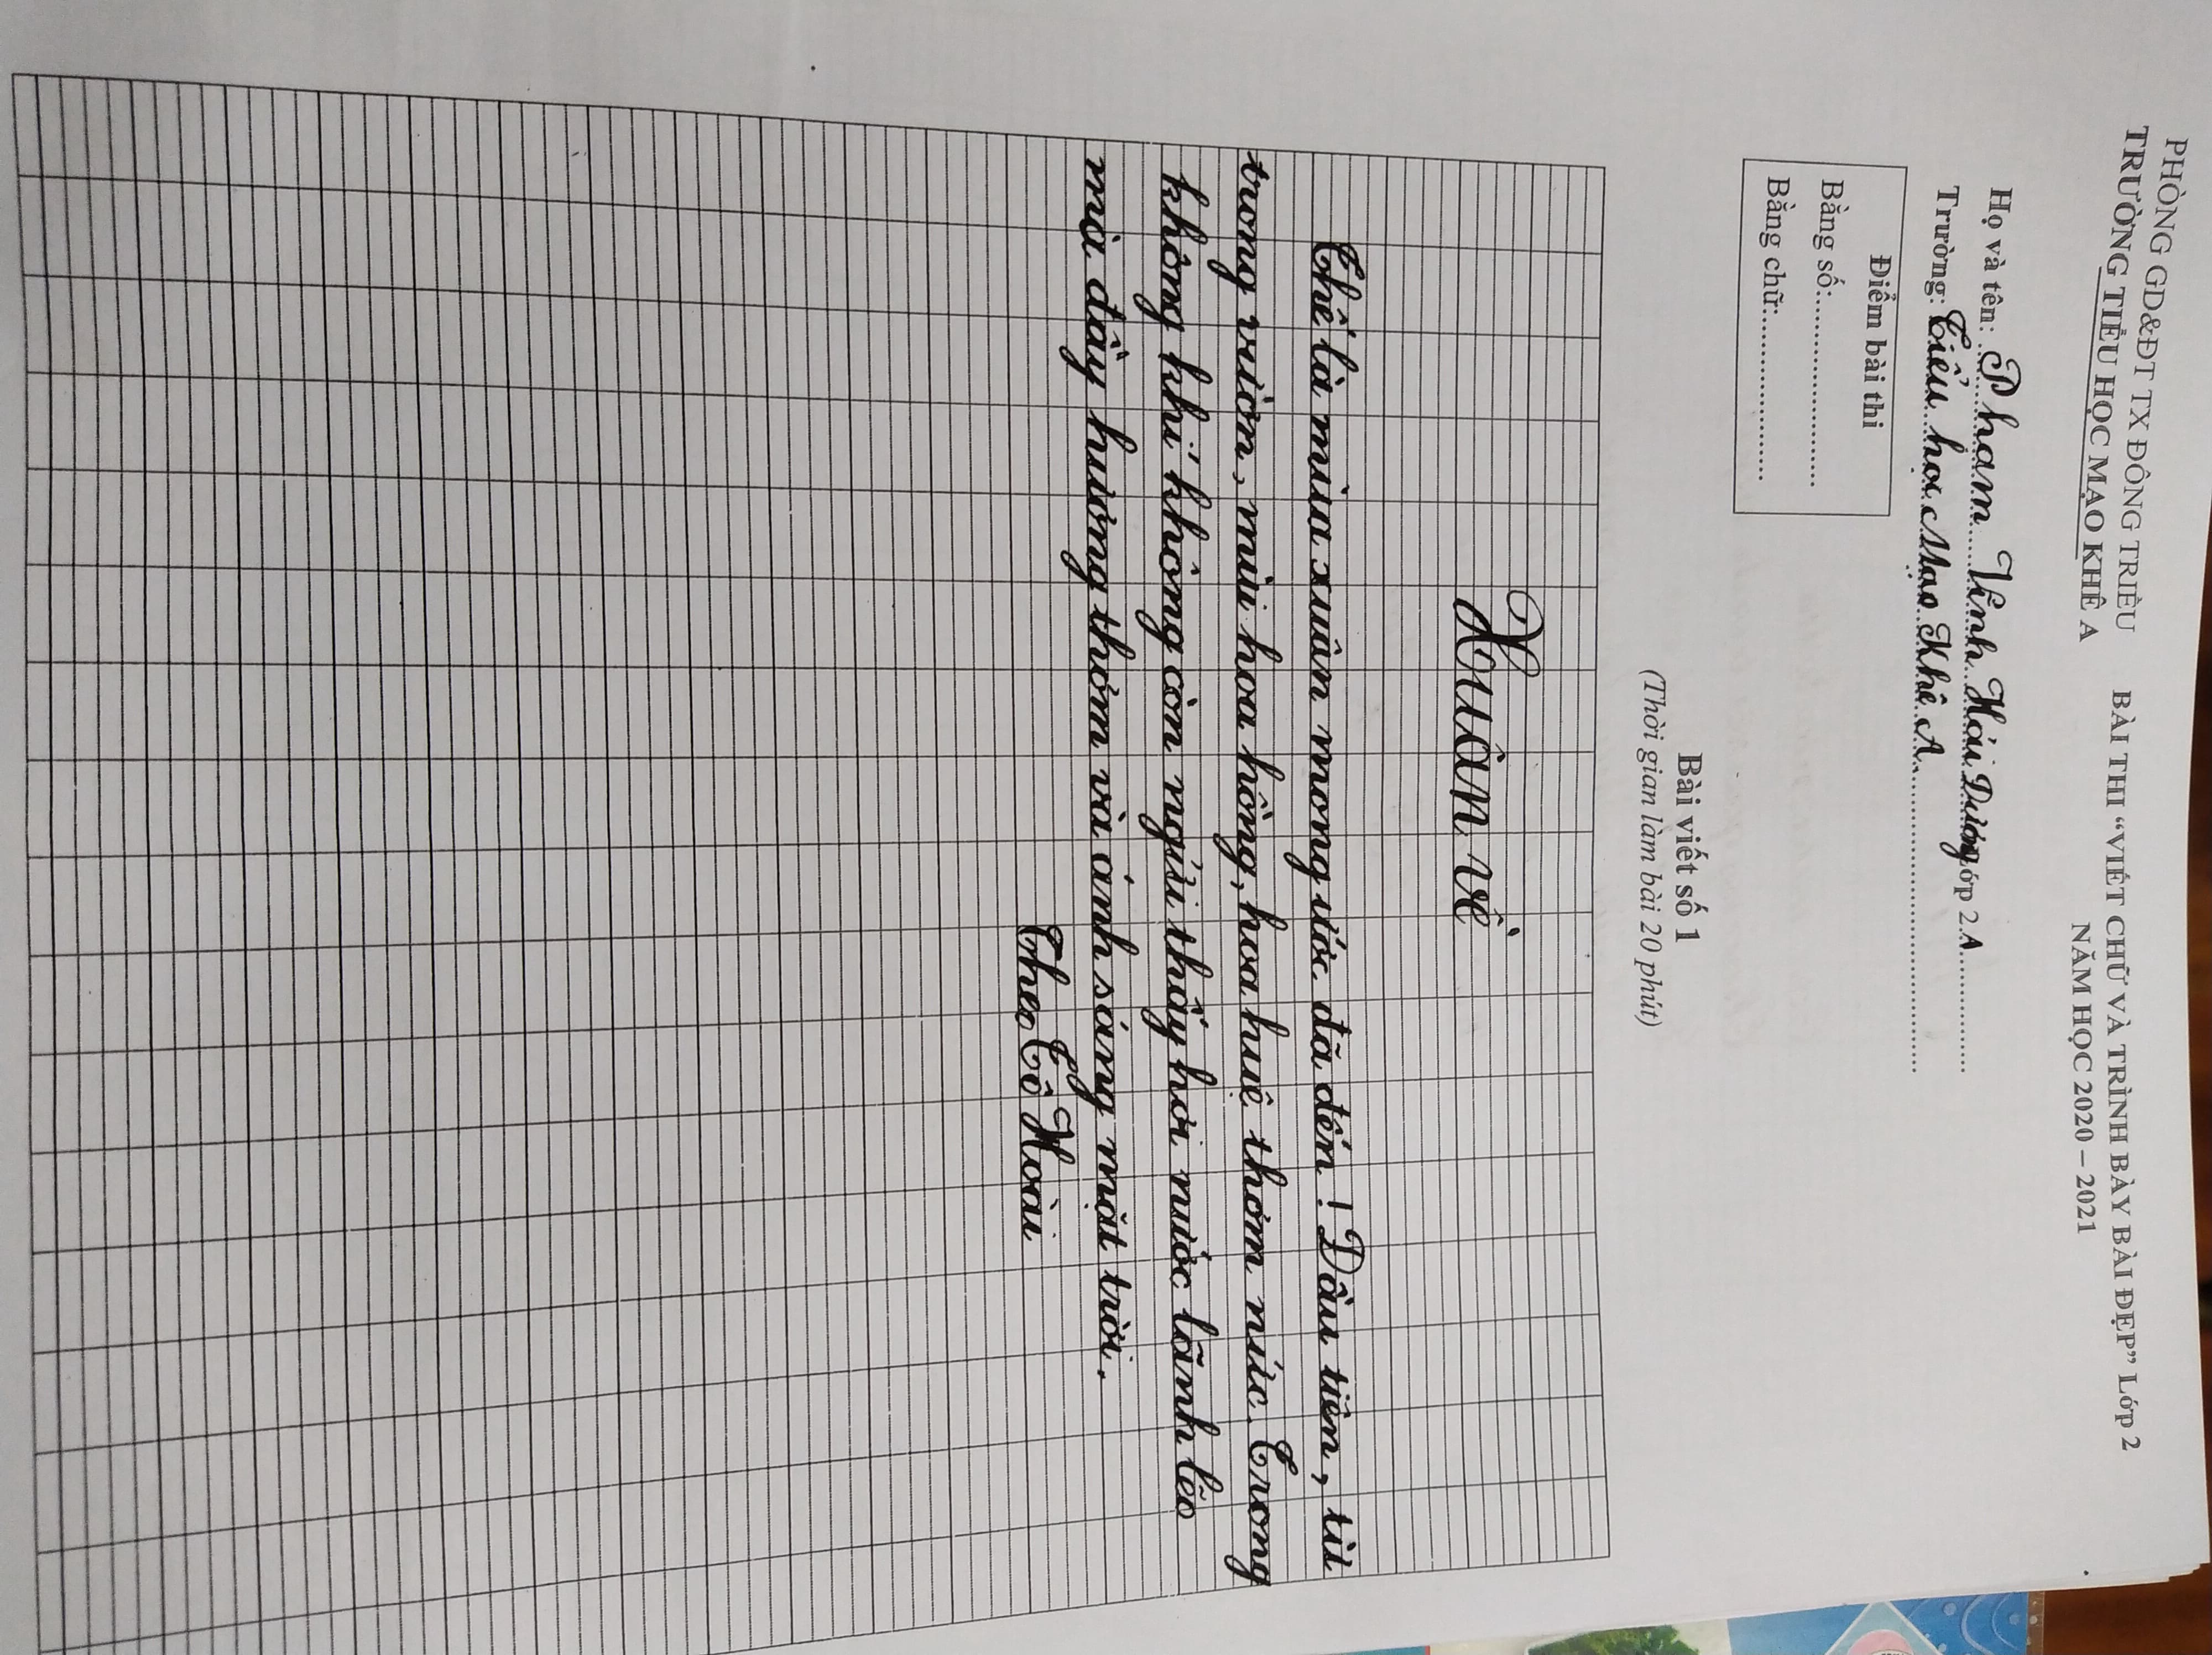 PHÒNG GD&ĐT TX ĐÔNG TRIỀU
TRƯỜNG TIỂU HỌC MẠO KHÊ A
BÀI THI “VIẾT CHỮ VÀ TRÌNH BÀY BÀI ĐẸP” Lớp 2
NĂM HỌC 2020 – 2021
Họ và tên: Phạm Vĩnh Hải Dương Lớp 2A
Trường: Tiểu học Mạo Khê A
Điểm bài thi
Bằng số:
Bằng chữ:
Bài viết số 1
(Thời gian làm bài 20 phút)
Xuân về
Thế là mùa xuân mong ước đã đến ! Đầu tiên, từ
trong vườn, mùi hoa hồng, hoa huệ thơm nức. Trong
không khí không còn ngửi thấy hơi nước lạnh lẽo
mà đầy hương thơm và ánh sáng mặt trời.
Theo Tô Hoài